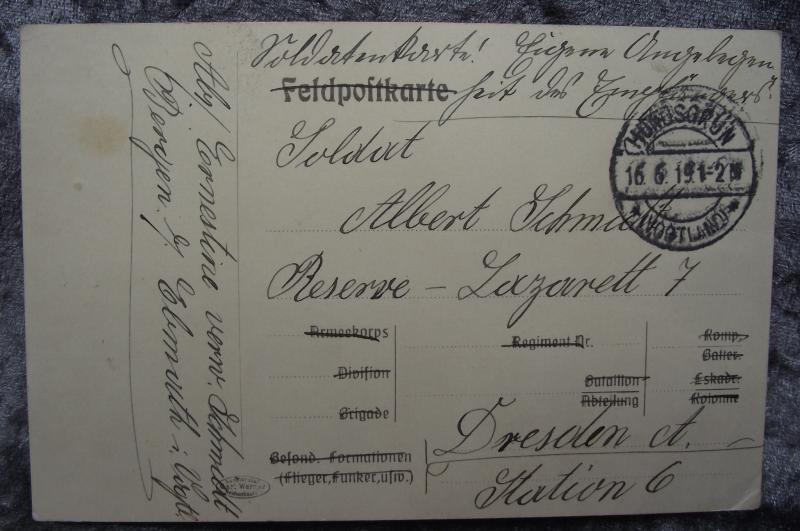 Soldatenkarte! Eigene Angelegen
Feldpostkarte heit des Empfängers.
Soldat
Albert Schmidt
Reserve – Lazarett 7
Armeekorps
Division
Brigade
Regiment Nr.
Bataillon
Abteilung
Komp.
Batter.
Eskadr.
Kolonne
Besond. Formationen
(Flieger, Funker, usw.)
Dresden A.
Station 6
HUNDSGRÜN
16. 6. 19. 1-2 N
*(VOGTLAND)*
Abs/ Ernestine verw. Schmidt
Bergen b/ Ebmath i. Vogtl